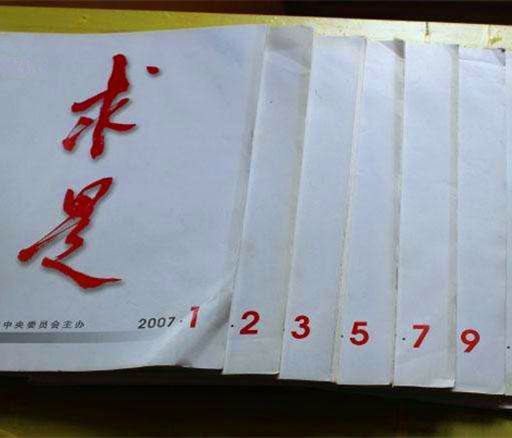 求
是
中央委员会主办
2007·1
·2
3
·5
·7
9